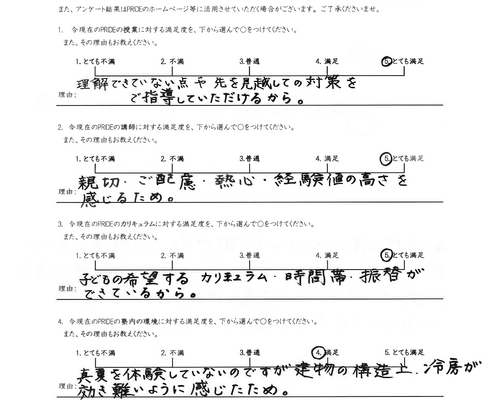 また、アンケート結果はPRIDEのホームページ等に活用させていただく場合がございます。ご了承くださいませ。
1. 今現在のPRIDEの授業に対する満足度を、下から選んで○をつけてください。
また、その理由もお教えください。
1.とても不満 2. 不満 3.普通 4. 満足 5.とても満足
理解できていない点や先を見越しての対策を
理由: ご指導していただけるから。
2. 今現在のPRIDEの講師に対する満足度を、下から選んで○をつけてください。
また、その理由もお教えください。
1.とても不満 2. 不満 3.普通 4. 満足 5.とても満足
親切・ご配慮・熱心・経験値の高さを
理由: 感じるため。
3. 今現在のPRIDEのカリキュラムに対する満足度を、下から選んで○をつけてください。
また、その理由もお教えください。
1.とても不満 2. 不満 3.普通 4. 満足 5.とても満足
子どもの希望する カリキュラム・時間帯・振替が
理由: できているから。
4. 今現在のPRIDEの塾内の環境に対する満足度を、下から選んで○をつけてください。
また、その理由もお教えください。
1.とても不満 2. 不満 3.普通 4.満足 5.とても満足
真夏を体験していないのですが建物の構造上、冷房が
理由: 効き難いように感じたため。